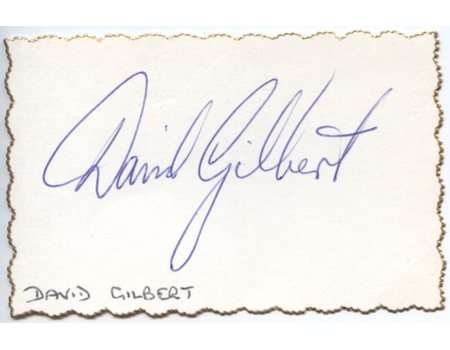 David Gilbert
DAVID GILBERT